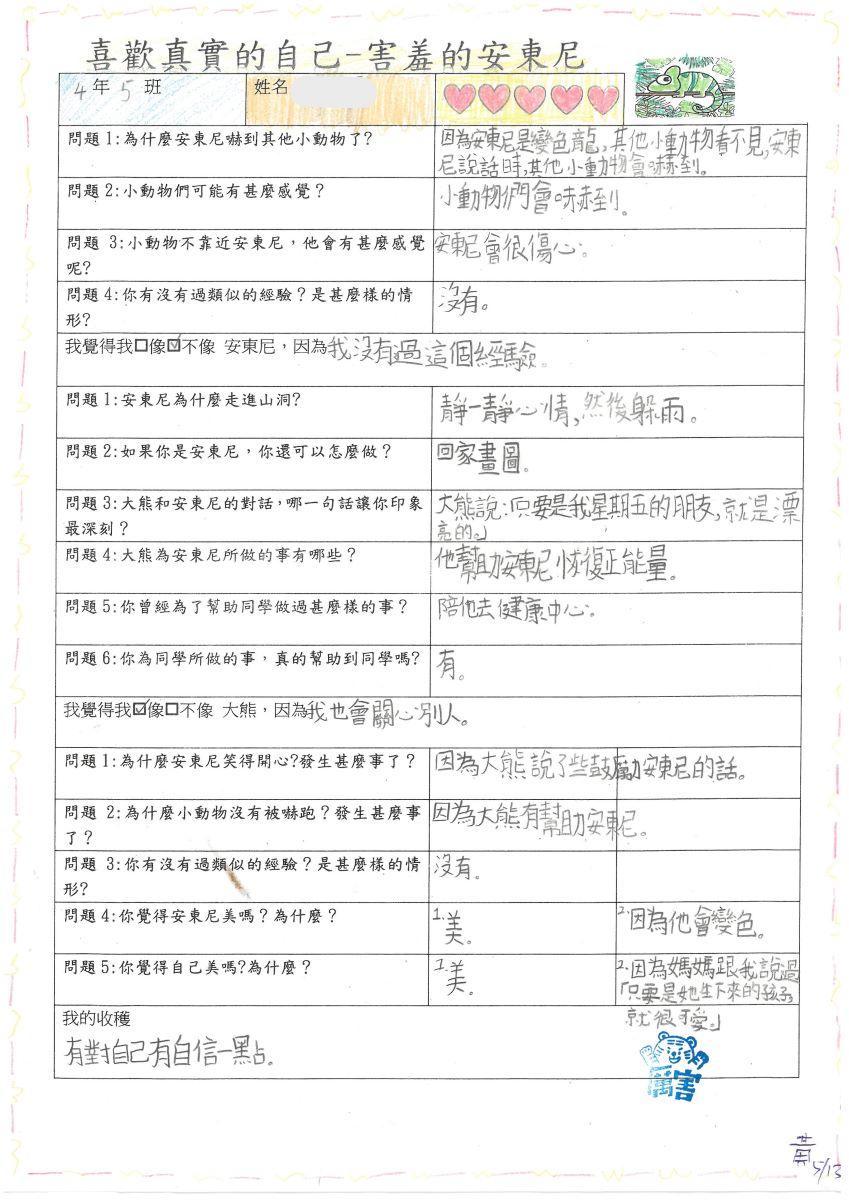 喜歡真實的自己-害羞的安東尼
4年5班 姓名
問題1:為什麼安東尼嚇到其他小動物了?
因為安東尼是變色龍,其他小動物看不見,安東
尼說話時,其他小動物會嚇到。
問題2:小動物們可能有甚麼感覺?
小動物們會嚇到。
問題 3:小動物不靠近安東尼,他會有甚麼感覺
呢?
安東尼會很傷心。
問題4:你有沒有過類似的經驗?是甚麼樣的情
形?
沒有。
我覺得我□像☑不像 安東尼,因為我沒有過這個經驗。
問題1:安東尼為什麼走進山洞?
靜一靜心情,然後躲雨。
問題2:如果你是安東尼,你還可以怎麼做?
回家畫圖。
問題3:大熊和安東尼的對話,哪一句話讓你印象
最深刻?
大熊說:「只要是我星期五的朋友,就是漂
亮的。」
問題4:大熊為安東尼所做的事有哪些?
他幫助安東尼恢復正能量。
問題5:你曾經為了幫助同學做過甚麼樣的事?
陪他去健康中心。
問題6:你為同學所做的事,真的幫助到同學嗎?
有。
我覺得我☑像□不像 大熊,因為我也會關心別人。
問題1:為什麼安東尼笑得開心?發生甚麼事了?
因為大熊說了些鼓勵安東尼的話。
問題 2:為什麼小動物沒有被嚇跑?發生甚麼事
了?
因為大熊有幫助安東尼。
問題 3:你有沒有過類似的經驗?是甚麼樣的情
形?
沒有。
問題4:你覺得安東尼美嗎?為什麼?
1.美。
2.因為他會變色。
問題5:你覺得自己美嗎?為什麼?
1.美。
2.因為媽媽跟我說過
「只要是她生下來的孩子,
就很可愛。」
我的收穫
有對自己有自信一點。
厲害
黃
5/13